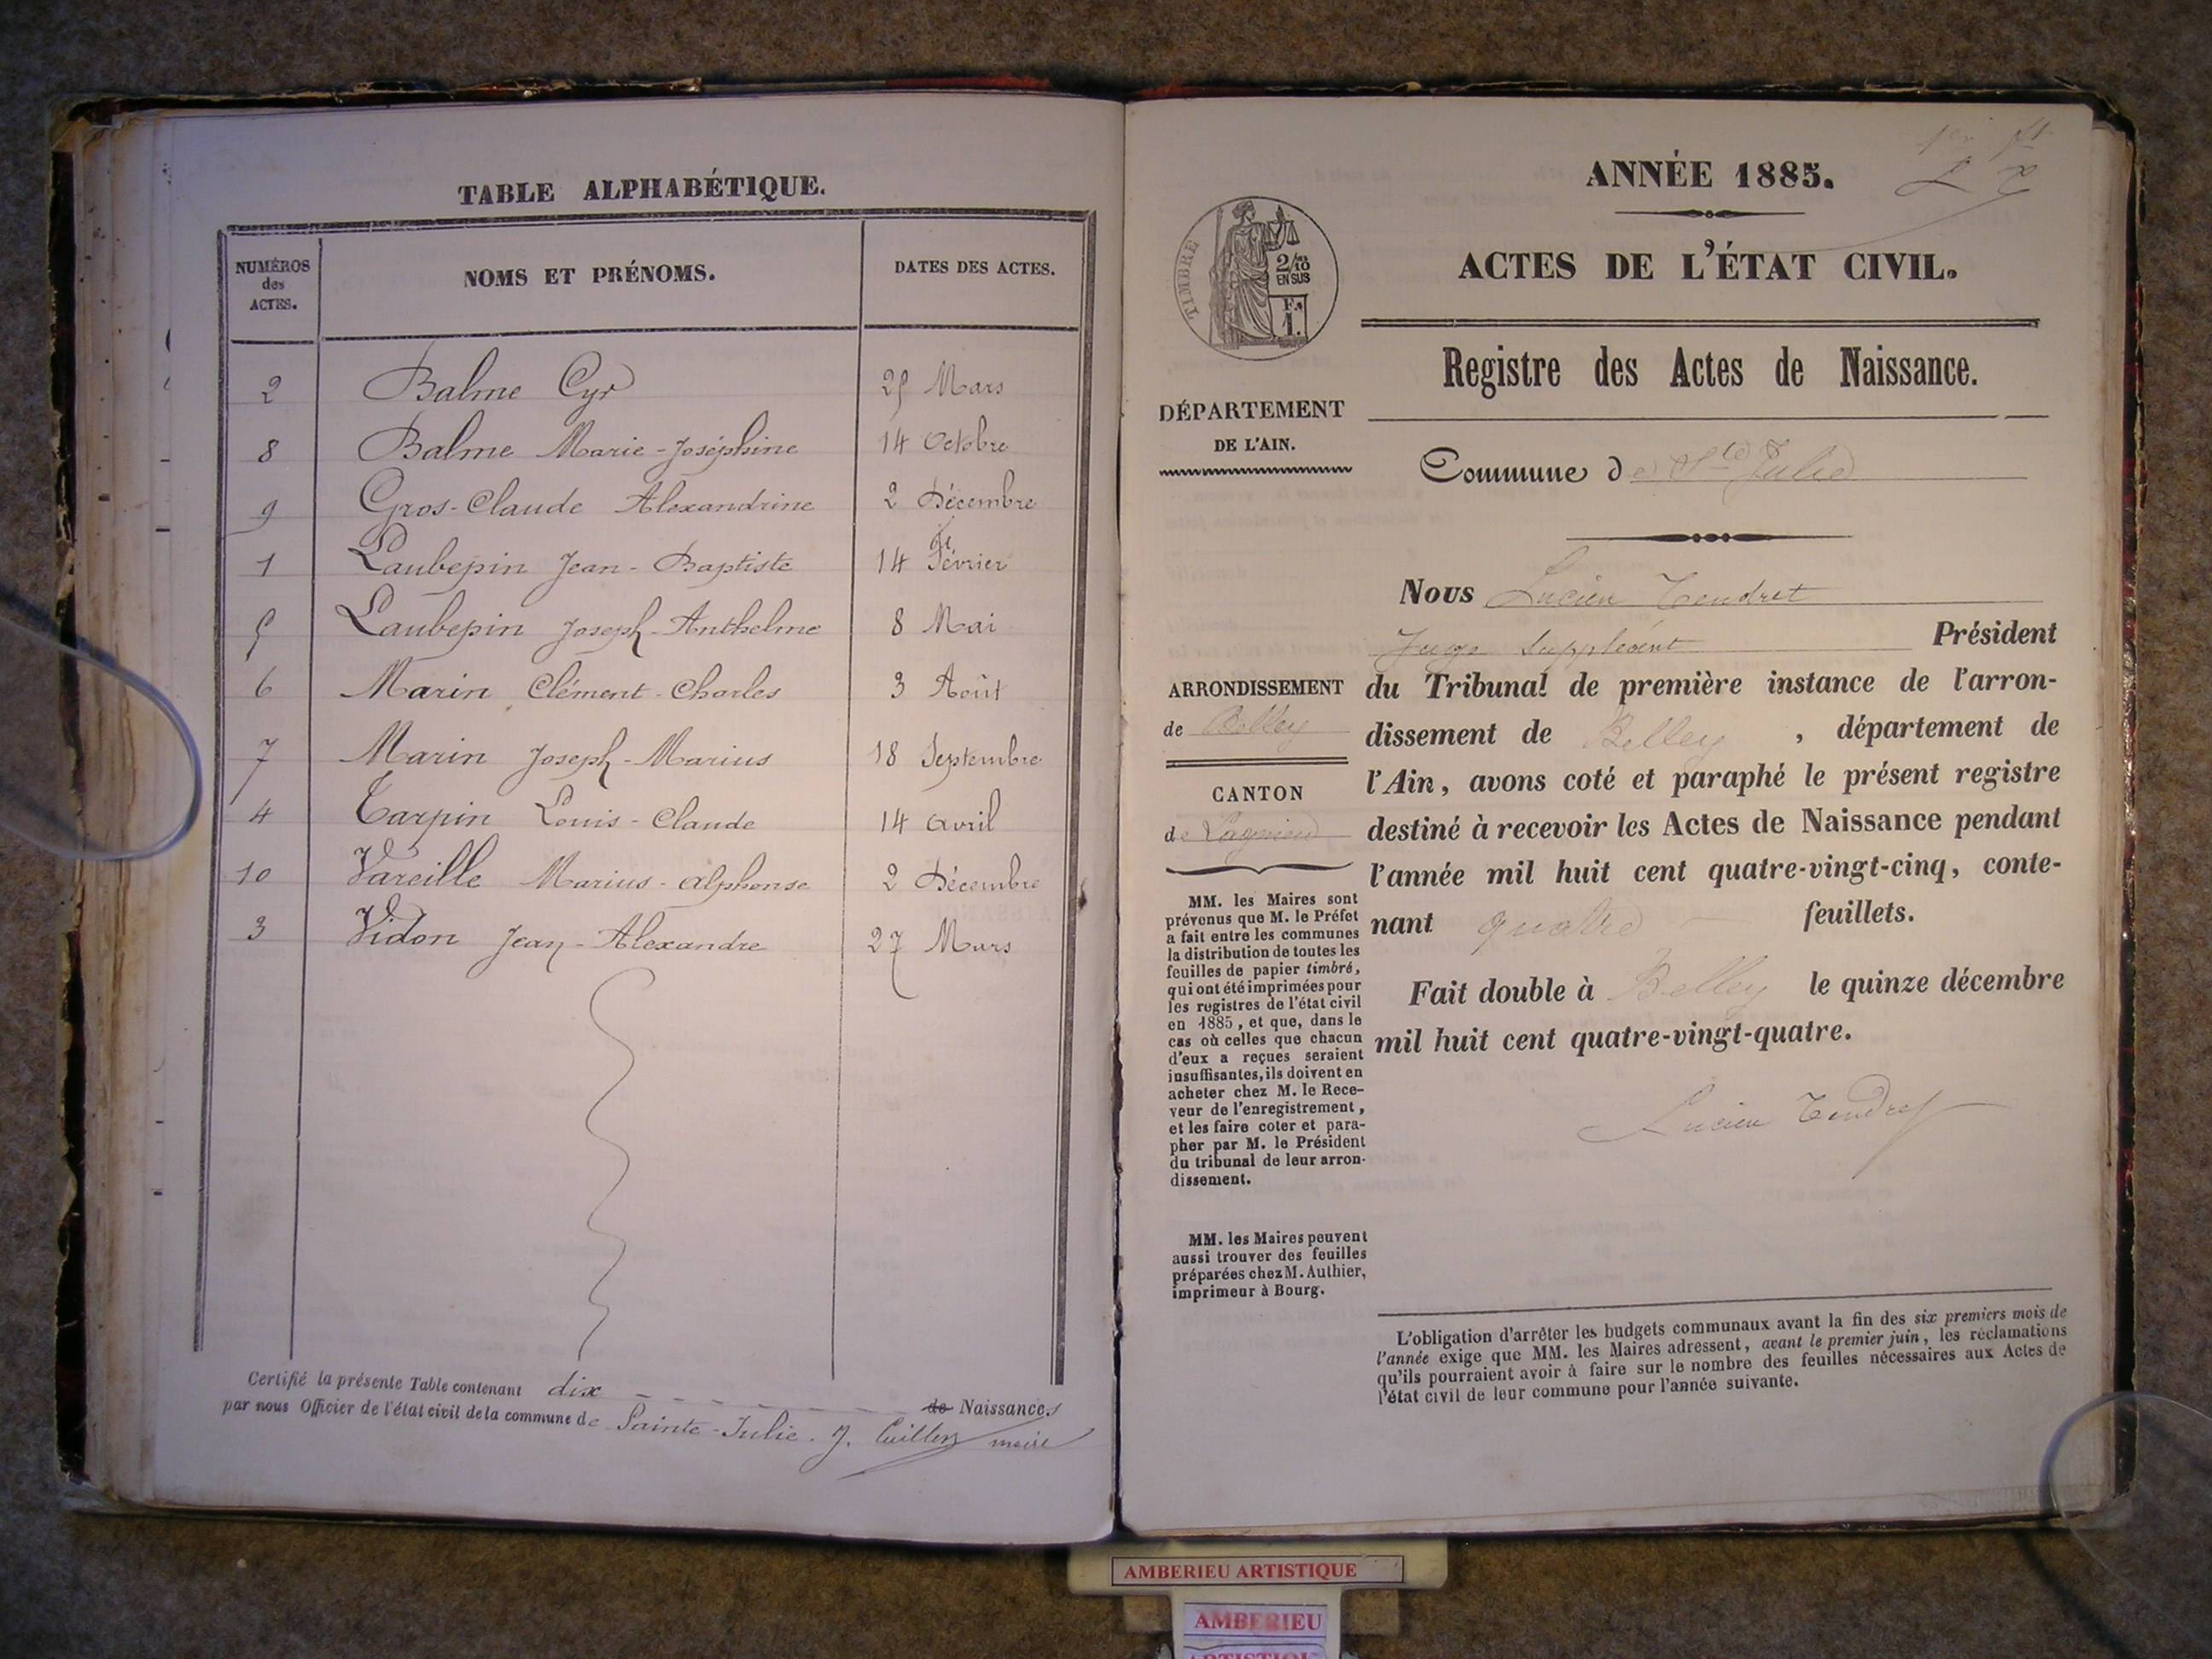 TABLE ALPHABÉTIQUE.
NUMÉROS des ACTES.
NOMS ET PRÉNOMS.
DATES DES ACTES.
2 Balme Cyr 25 Mars
8 Balme Marie-Joséphine 14 Octobre
9 Gros-Claude Alexandrine 2 Décembre
1 Laubepin Jean-Baptiste 14 Février
5 Laubepin Joseph-Anthelme 8 Mai
6 Marin Clément-Charles 3 Août
7 Marin Joseph-Marius 18 Septembre
4 Tarpin Louis-Claude 14 avril
10 Vareille Marius-alphonse 2 Décembre
3 Vidon Jean-Alexandre 27 Mars
Certifié la présente Table contenant dix de Naissances
par nous Officier de l'état civil de la commune de Sainte-Julie. J. maire
ANNÉE 1885.
ACTES DE L'ÉTAT CIVIL.
TIMBRE
2/10
EN SUS
F.
1.
Registre des Actes de Naissance.
DÉPARTEMENT
DE L'AIN.
Commune de Ste Julie
Nous Lucien Tendret
Juge suppléant Président
du Tribunal de première instance de l'arron-
dissement de Belley, département de
l'Ain, avons coté et paraphé le présent registre
destiné à recevoir les Actes de Naissance pendant
l'année mil huit cent quatre-vingt-cinq, conte-
nant quatre feuillets.
Fait double à Belley le quinze décembre
mil huit cent quatre-vingt-quatre.
Lucien Tendret
ARRONDISSEMENT
de Belley
CANTON
de Lagnieu
MM. les Maires sont
prévenus que M. le Préfet
a fait entre les communes
la distribution de toutes les
feuilles de papier timbré,
qui ont été imprimées pour
les registres de l'état civil
en 1885, et que, dans le
cas où celles que chacun
d'eux a reçues seraient
insuffisantes, ils doivent en
acheter chez M. le Rece-
veur de l'enregistrement,
et les faire coter et para-
pher par M. le Président
du tribunal de leur arron-
dissement.
MM. les Maires peuvent
aussi trouver des feuilles
préparées chez M. Authier,
imprimeur à Bourg.
L'obligation d'arrêter les budgets communaux avant la fin des six premiers mois de
l'année exige que MM. les Maires adressent, avant le premier juin, les réclamations
qu'ils pourraient avoir à faire sur le nombre des feuilles nécessaires aux Actes de
l'état civil de leur commune pour l'année suivante.
AMBERIEU ARTISTIQUE
AMBERIEU